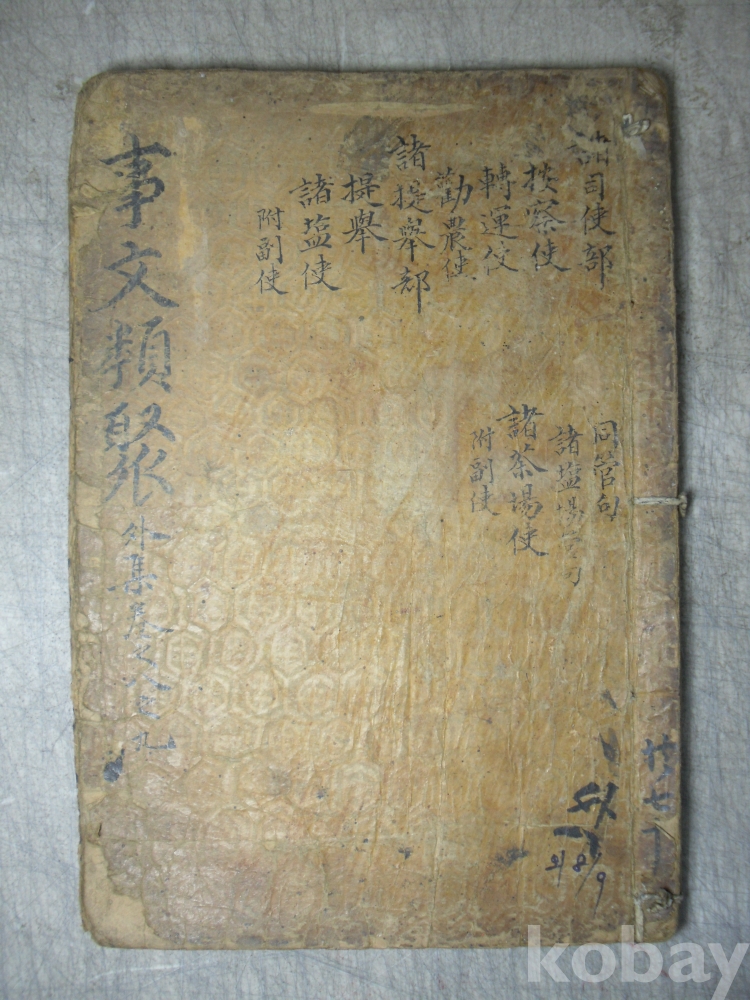 諸司使部
按察使
轉運使
勸農使
諸提舉部
提舉
諸塩使
附副使
同管勾
諸塩場管勾
諸茶場使
附副使
事文類聚
外集卷之八之九
外
외 8/9
kobay